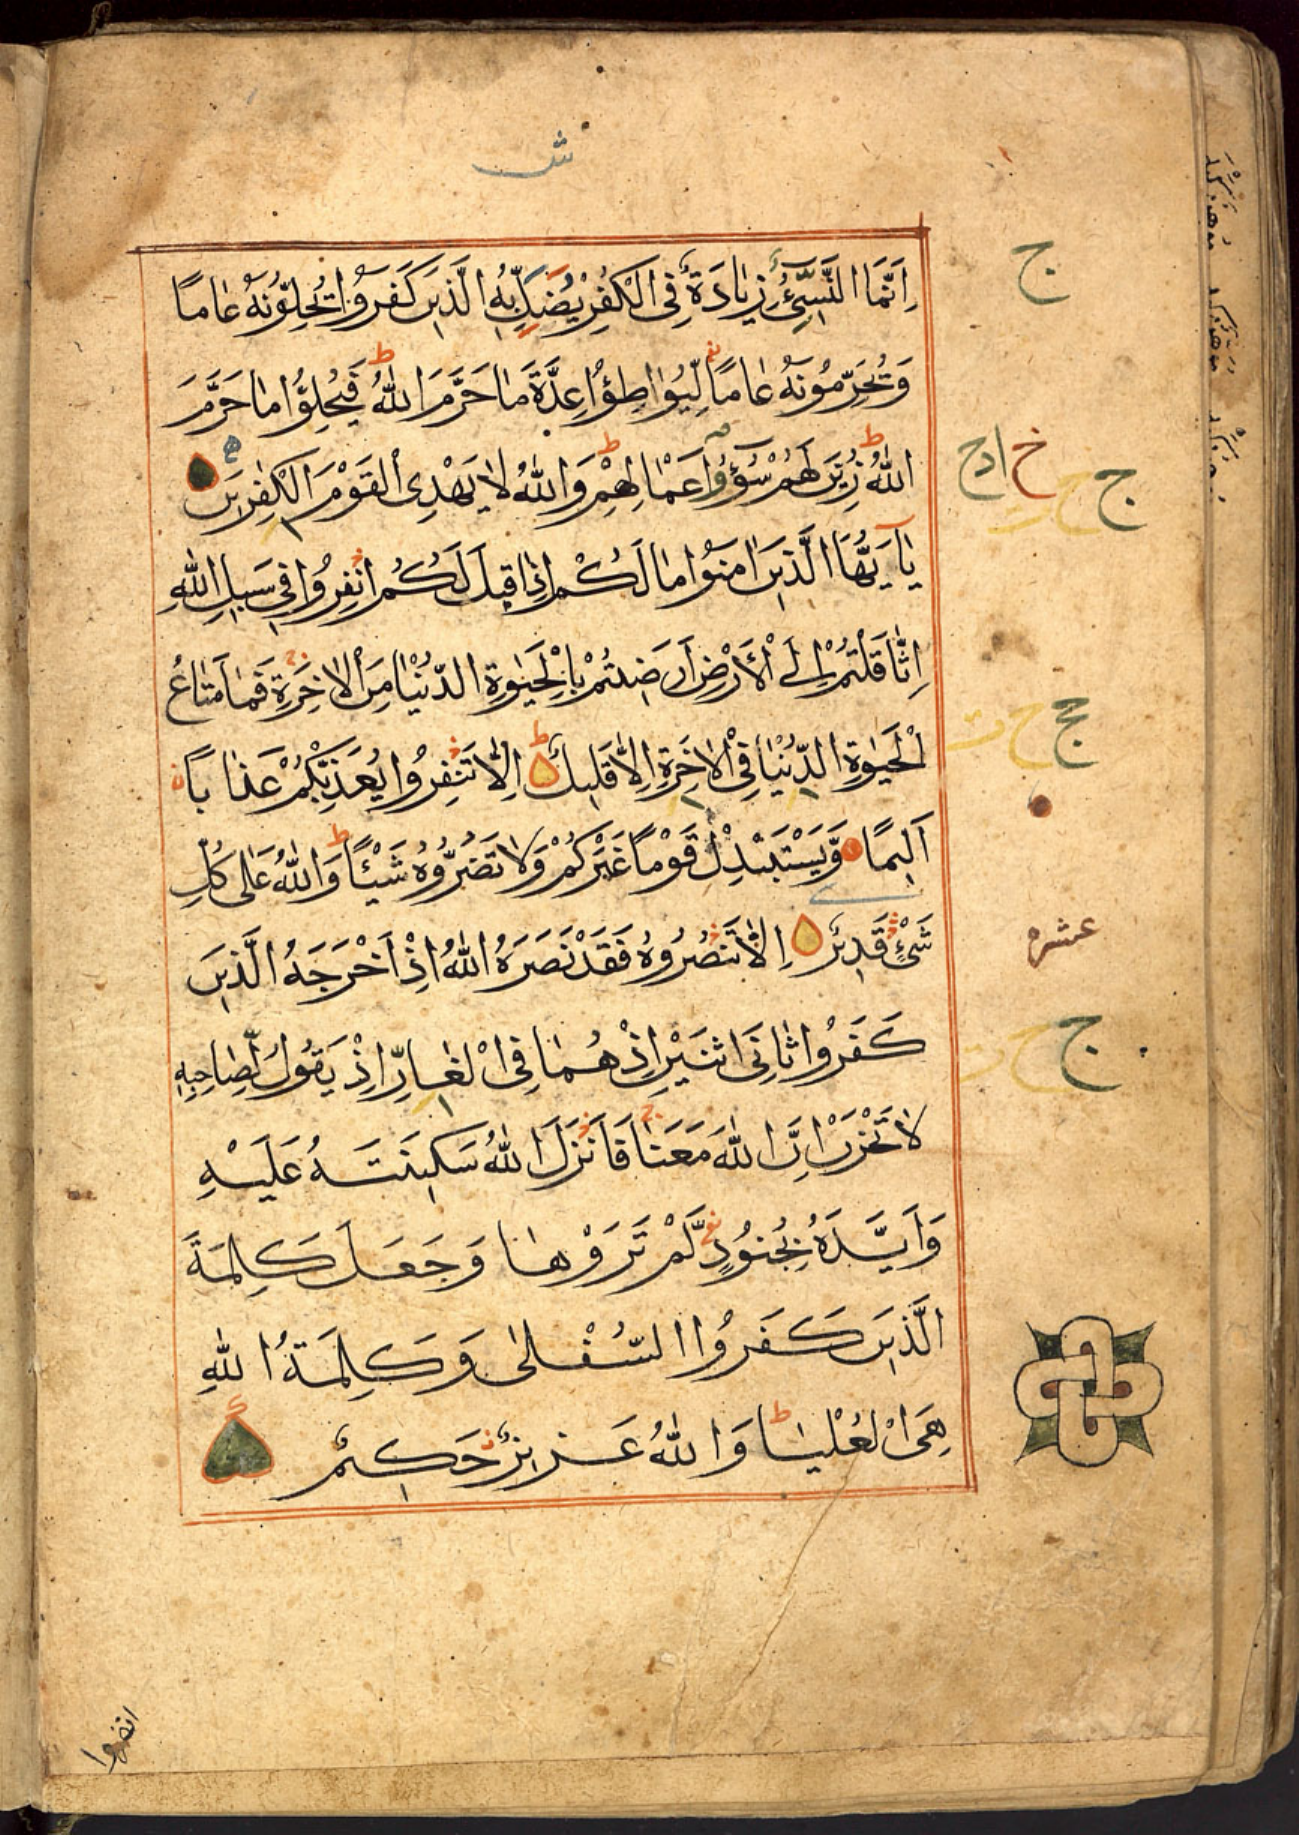 ش
اِنَّمَا النَّسِیْٓءُ زِیَادَةٌ فِی الْكُفْرِ یُضَلُّ بِهِ الَّذِیْنَ كَفَرُوْا یُحِلُّوْنَهٗ عَامًا
وَیُحَرِّمُوْنَهٗ عَامًا لِّیُوَاطِـُٔوْا عِدَّةَ مَا حَرَّمَ اللّٰهُ فَیُحِلُّوْا مَا حَرَّمَ
اللّٰهُ زُیِّنَ لَهُمْ سُوْٓءُ اَعْمَالِهِمْ وَاللّٰهُ لَا یَهْدِی الْقَوْمَ الْكٰفِرِیْنَ
یٰۤاَیُّهَا الَّذِیْنَ اٰمَنُوْا مَا لَكُمْ اِذَا قِیْلَ لَكُمُ انْفِرُوْا فِیْ سَبِیْلِ اللّٰهِ
اثَّاقَلْتُمْ اِلَی الْاَرْضِ اَرَضِیْتُمْ بِالْحَیٰوةِ الدُّنْیَا مِنَ الْاٰخِرَةِ فَمَا مَتَاعُ
الْحَیٰوةِ الدُّنْیَا فِی الْاٰخِرَةِ اِلَّا قَلِیْلٌ اِلَّا تَنْفِرُوْا یُعَذِّبْكُمْ عَذَابًا
اَلِیْمًا وَّیَسْتَبْدِلْ قَوْمًا غَیْرَكُمْ وَلَا تَضُرُّوْهُ شَیْـًٔا وَاللّٰهُ عَلٰی كُلِّ
شَیْءٍ قَدِیْرٌ اِلَّا تَنْصُرُوْهُ فَقَدْ نَصَرَهُ اللّٰهُ اِذْ اَخْرَجَهُ الَّذِیْنَ
كَفَرُوْا ثَانِیَ اثْنَیْنِ اِذْ هُمَا فِی الْغَارِ اِذْ یَقُوْلُ لِصَاحِبِهٖ
لَا تَحْزَنْ اِنَّ اللّٰهَ مَعَنَا فَاَنْزَلَ اللّٰهُ سَكِیْنَتَهٗ عَلَیْهِ
وَاَیَّدَهٗ بِجُنُوْدٍ لَّمْ تَرَوْهَا وَجَعَلَ كَلِمَةَ
الَّذِیْنَ كَفَرُوا السُّفْلٰی وَكَلِمَةُ اللّٰهِ
هِیَ الْعُلْیَا وَاللّٰهُ عَزِیْزٌ حَكِیْمٌ
ج
ج
خ
ج
عشره
ج
انفروا